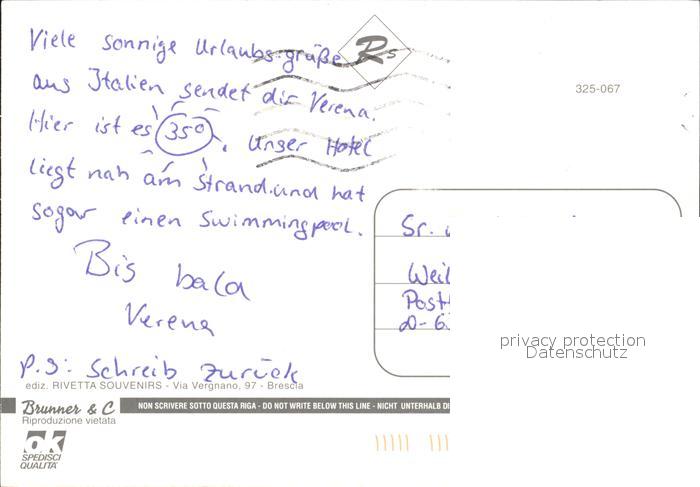 Viele sonnige Urlaubsgrüße
aus Italien sendet dir Verena.
Hier ist es 35°. Unser Hotel
liegt nah am Strand und hat
sogar einen Swimmingpool.
Bis bald
Verena
P.S: Schreib zurück
ediz. RIVETTA SOUVENIRS - Via Vergnano, 97 - Brescia
Brunner & C
Riproduzione vietata
NON SCRIVERE SOTTO QUESTA RIGA - DO NOT WRITE BELOW THIS LINE - NICHT UNTERHALB DI
ok
SPEDISCI
QUALITA'
RS
325-067
Sr.
Weil
Post
D-6
privacy protection
Datenschutz